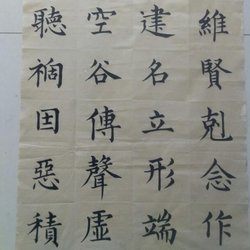 維賢剋念作
建名立形端
空谷傳聲虛
聽禍因惡積